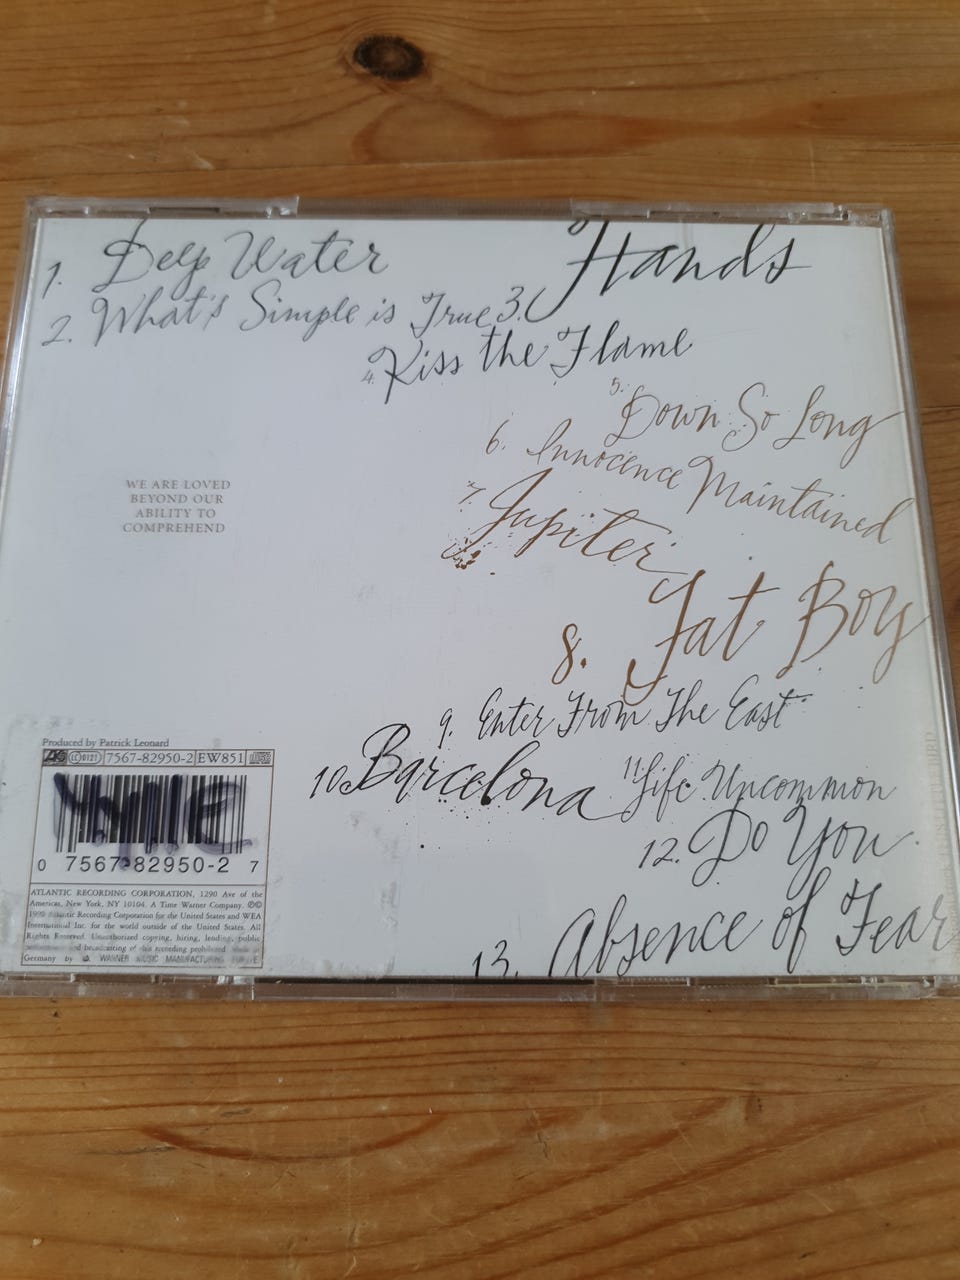 1. Deep Water
2. What's Simple is True
3. Hands
4. Kiss the Flame
5. Down So Long
6. Innocence Maintained
7. Jupiter
8. Fat Boy
9. Enter From The East
10. Barcelona
11. Life Uncommon
12. Do You
13. Absence of Fear
WE ARE LOVED
BEYOND OUR
ABILITY TO
COMPREHEND
Produced by Patrick Leonard
LC 0121 7567-82950-2 EW851
0 7567-82950-2 7
ATLANTIC RECORDING CORPORATION, 1290 Ave of the
Americas, New York, NY 10104. A Time Warner Company. ℗©
Atlantic Recording Corporation for the United States and WEA
International Inc. for the world outside of the United States. All
Rights Reserved. Unauthorized copying, hiring, lending, public
and broadcasting of this recording prohibited.
Germany by WARNER MUSIC MANUFACTURING